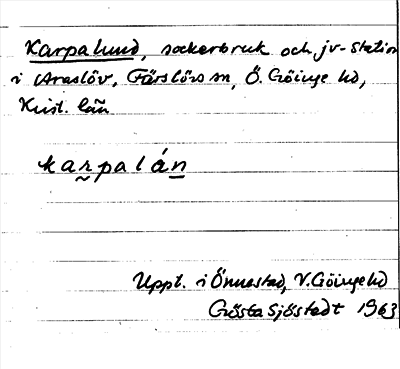 Karpalund, sockerbruk och jv-station
i Araslöv, Färlövs sn, Ö. Göinge hd,
Krist. län
karpalán
Uppt. i Önnestad, V. Göinge hd
Gösta Sjöstedt 1963